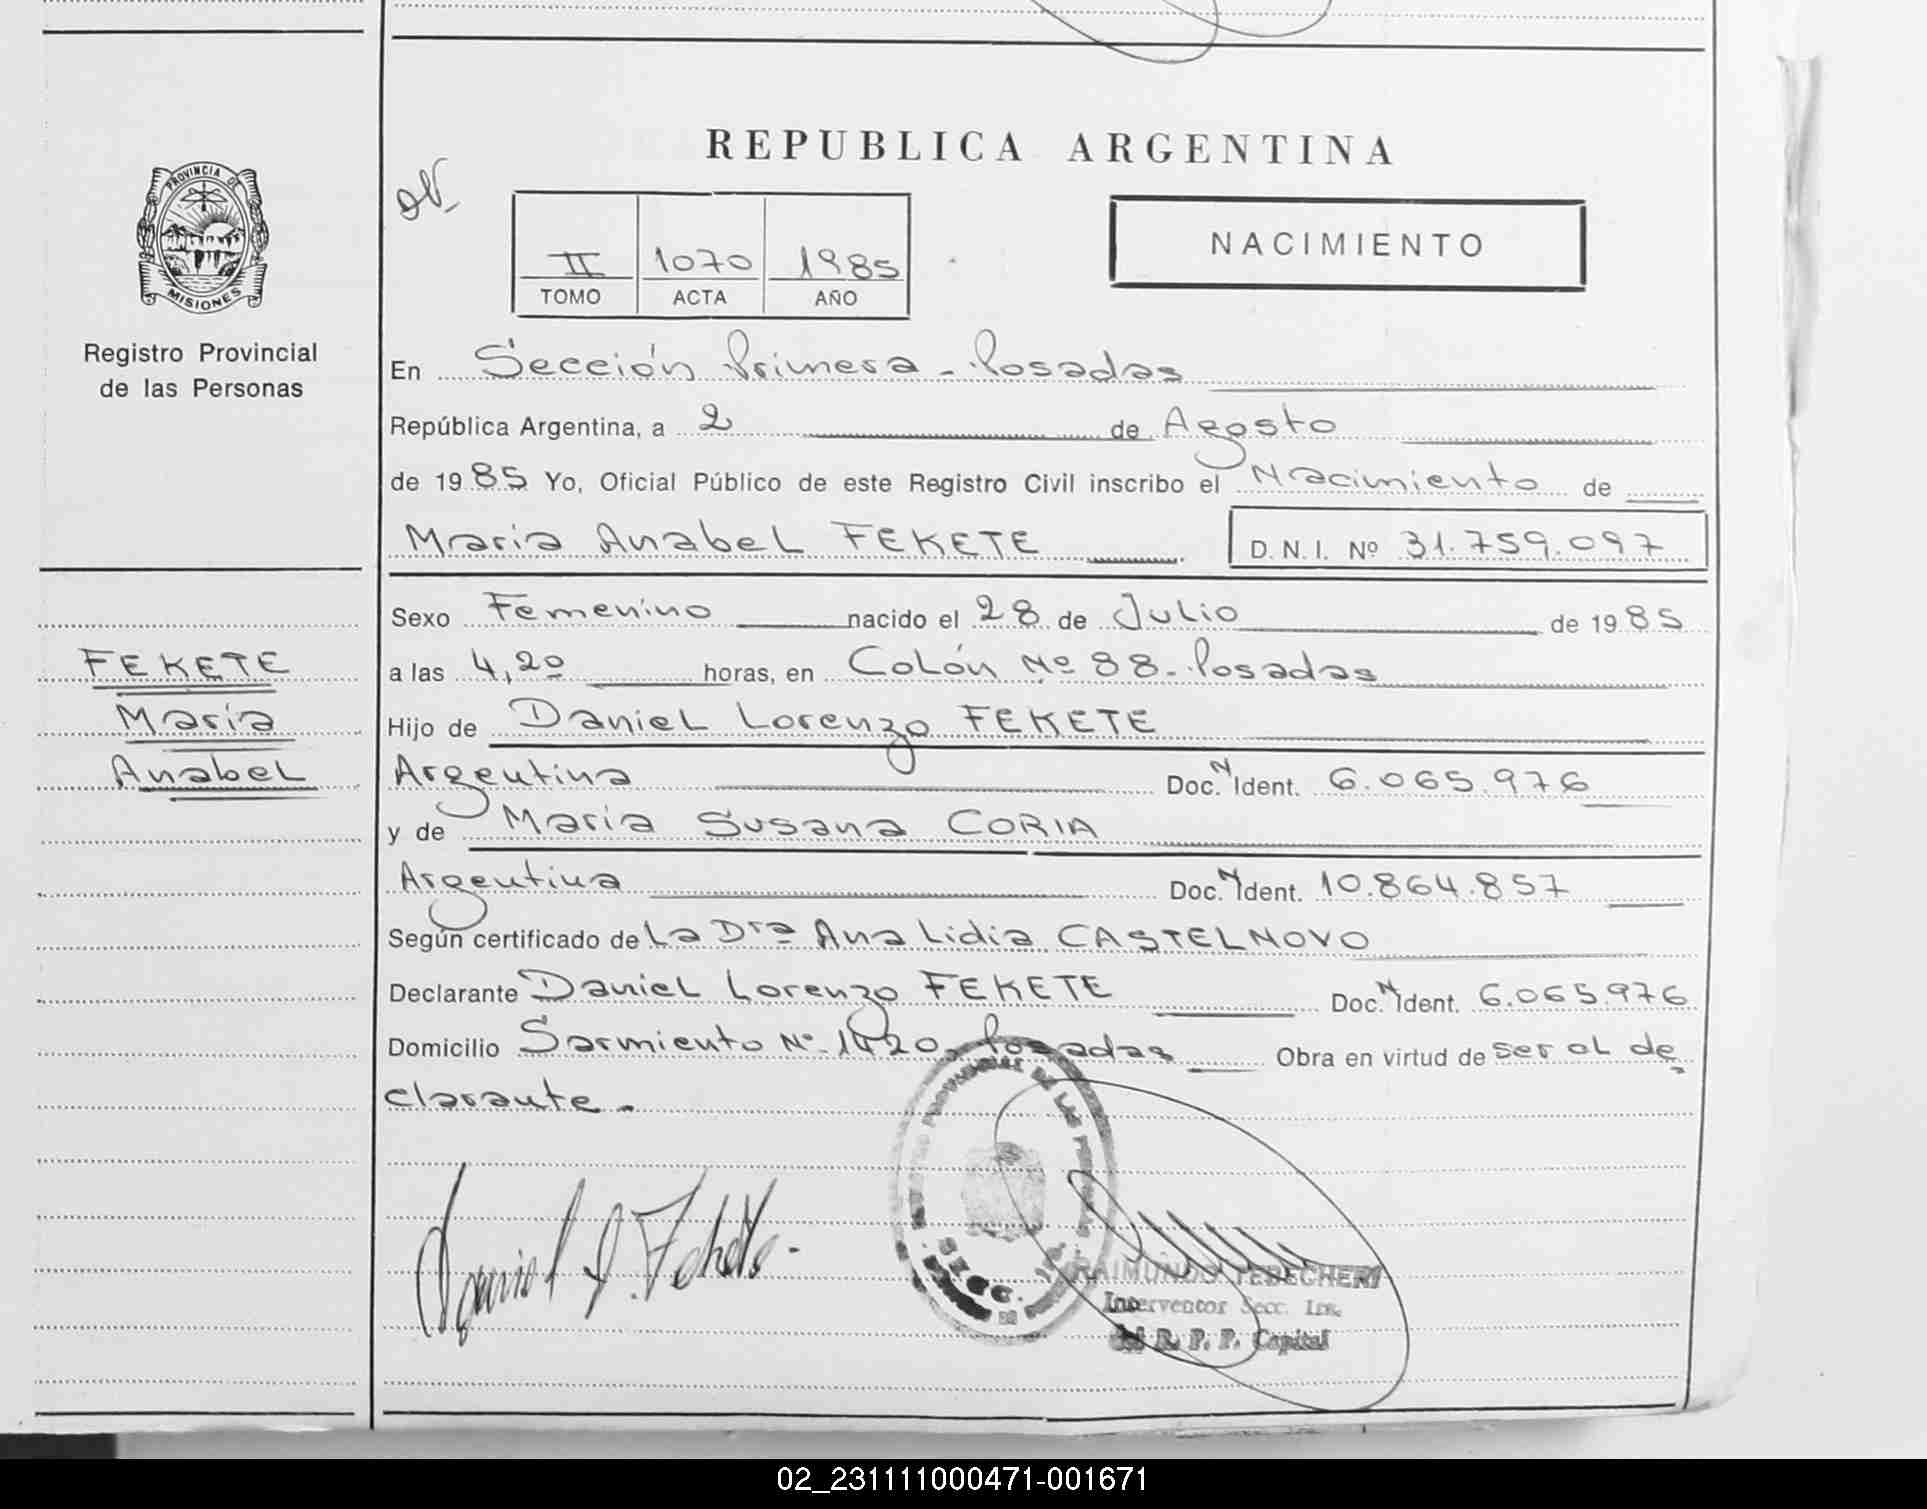 REPUBLICA ARGENTINA
PROVINCIA DE
MISIONES
Registro Provincial
de las Personas
II 1070 1985
TOMO ACTA AÑO
NACIMIENTO
En Sección Primera - Posadas
República Argentina, a 2 de Agosto
de 1985 Yo, Oficial Público de este Registro Civil inscribo el Nacimiento de
Maria Anabel FEKETE D.N.I. Nº 31.759.097
Sexo Femenino nacido el 28 de Julio de 1985
a las 4,20 horas, en Colón Nº 88- Posadas
Hijo de Daniel Lorenzo FEKETE
Argentina Doc. N Ident. 6.065.976
y de María Susana CORIA
Argentina Doc. N Ident. 10.864.857
Según certificado de La Dra Ana Lidia CASTELNOVO
Declarante Daniel Lorenzo FEKETE Doc. N Ident. 6.065.976
Domicilio Sarmiento Nº Posadas Obra en virtud de ser el de
clarante.-
FEKETE
María
Anabel
Daniel L. Fekete.-
PROVINCIAL DE LAS
SECC.
RAIMUNDO TEDECHERI
Interventor Secc. 1ra.
del R. P. P. Capital
02_231111000471-001671